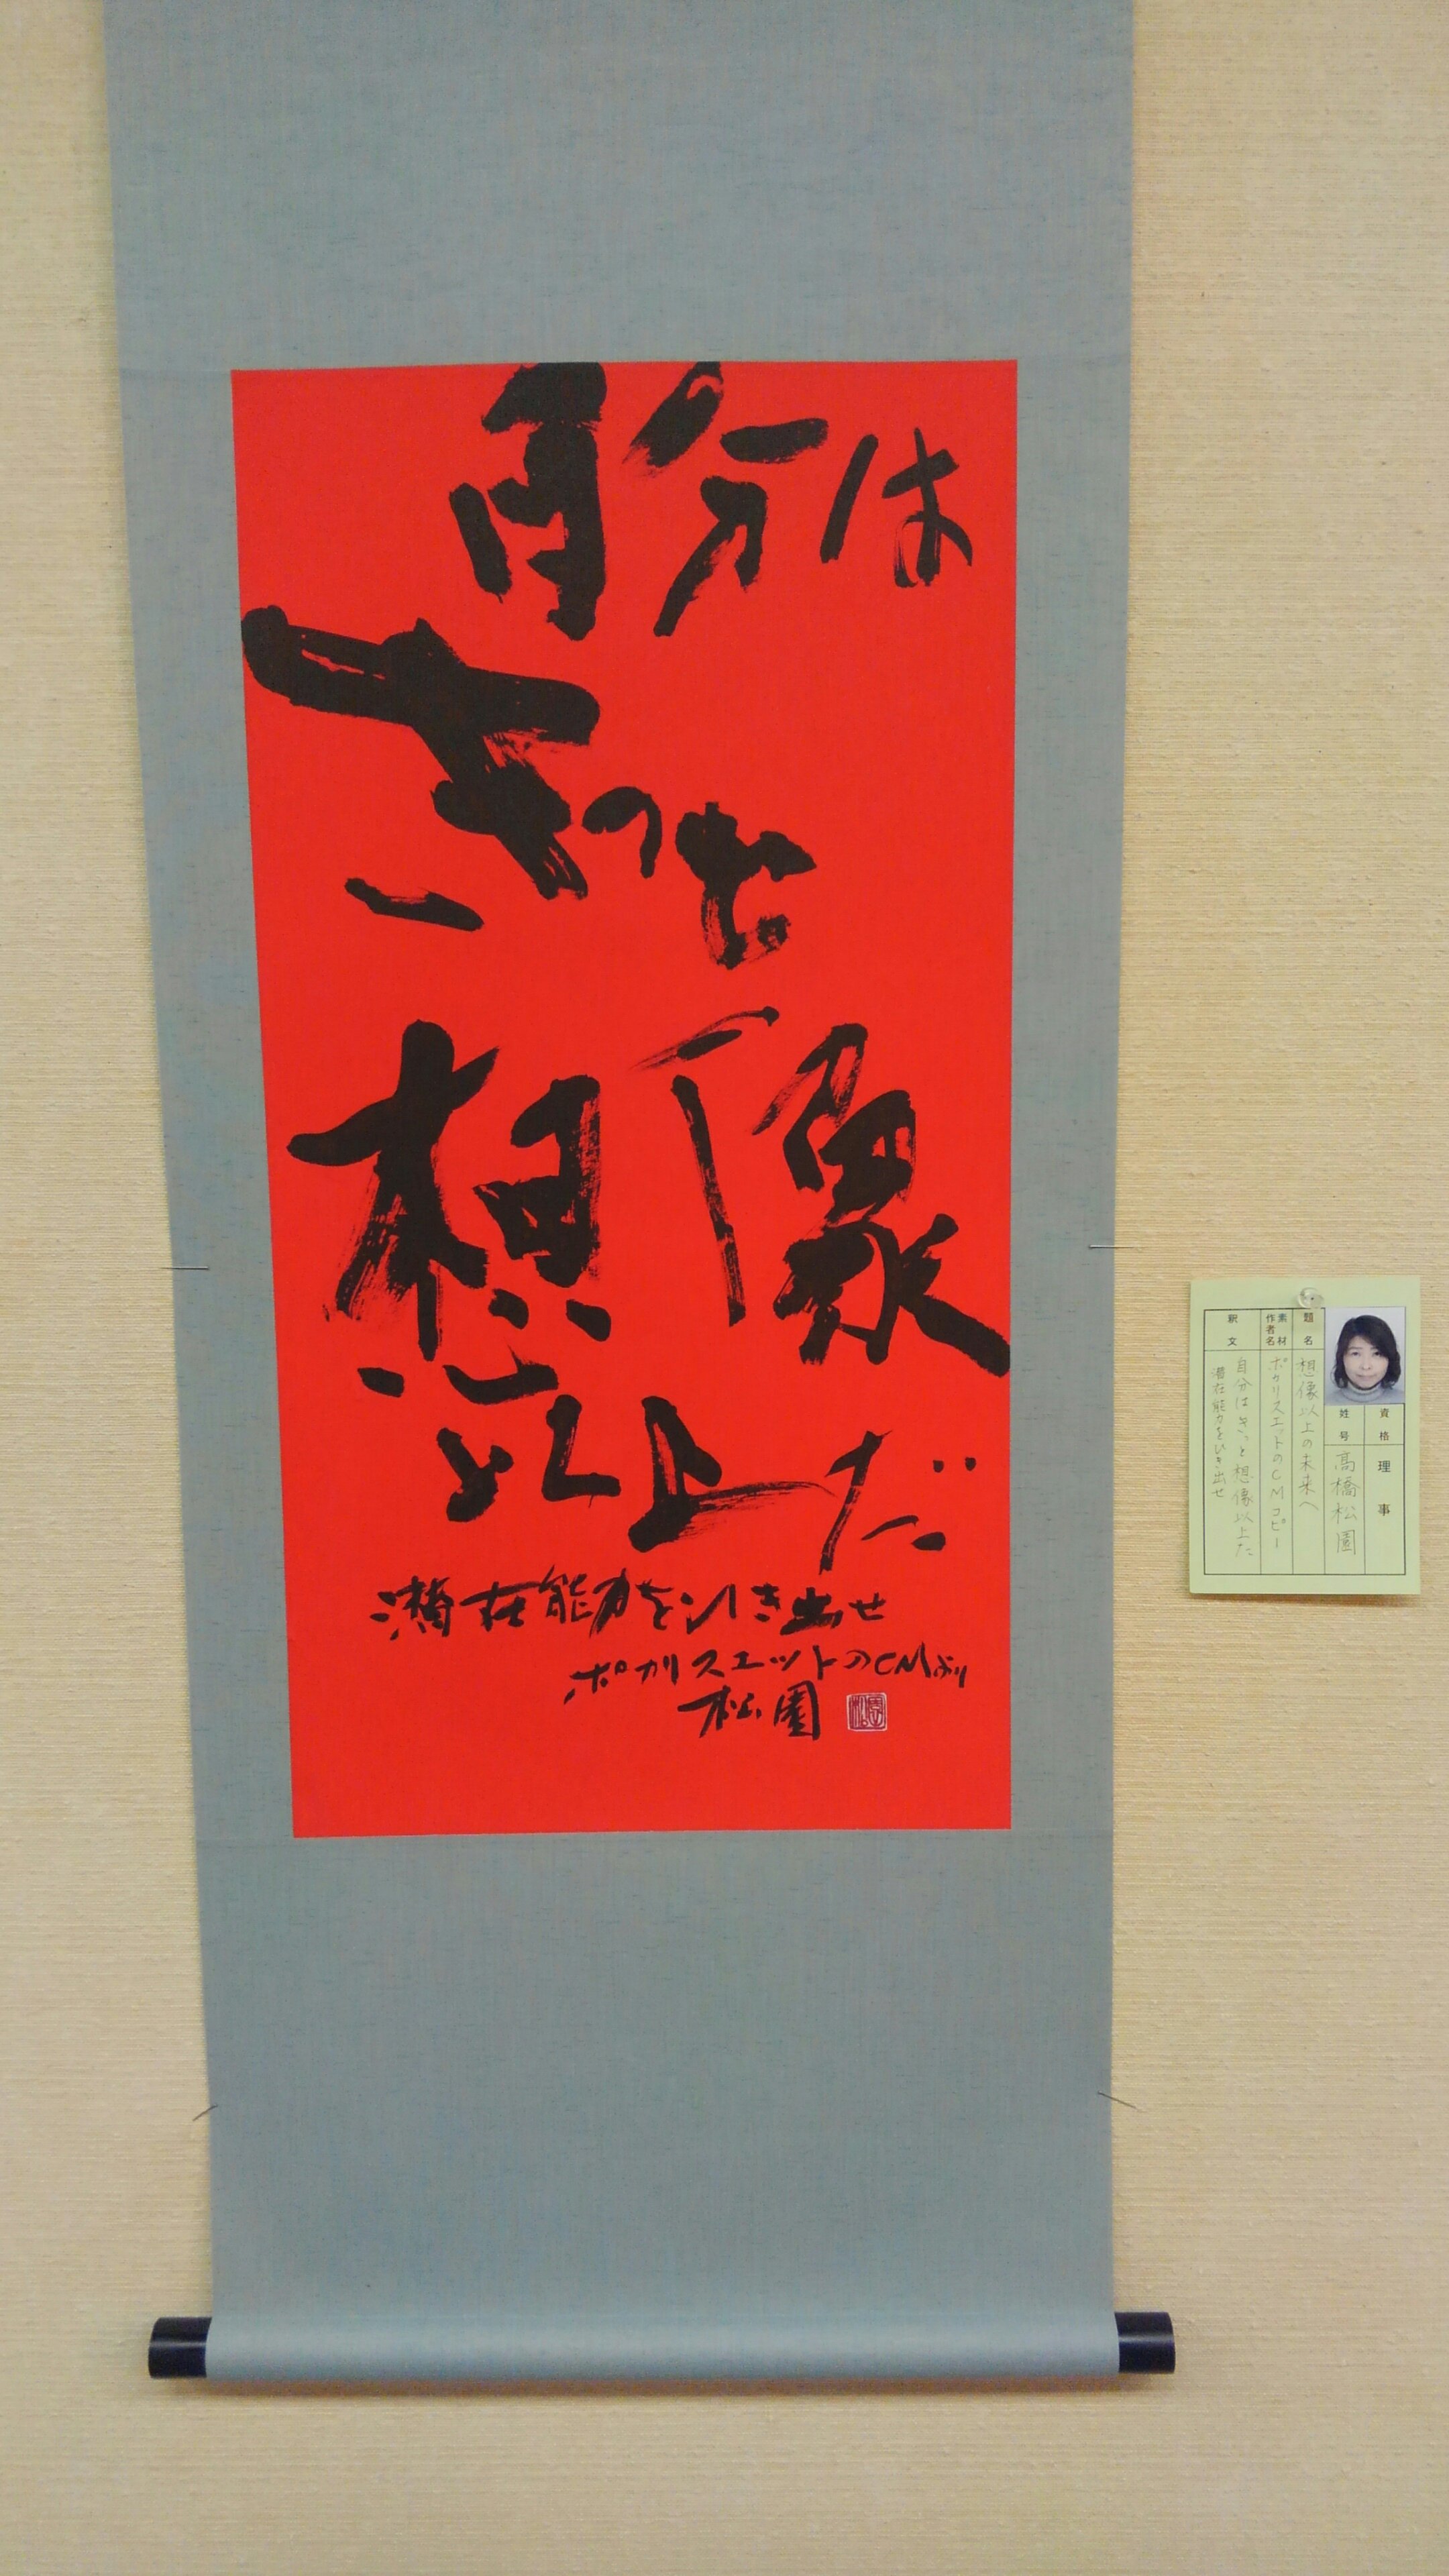 自分は
きっと
想像
以上だ
潜在能力をひき出せ
ポカリスエットのCMより
松園
資格 理事
姓号 高橋松園
題名 想像以上の未来へ
素材 作者名 ポカリスエットのCMコピー
釈文 自分はきっと想像以上だ
潜在能力をひき出せ